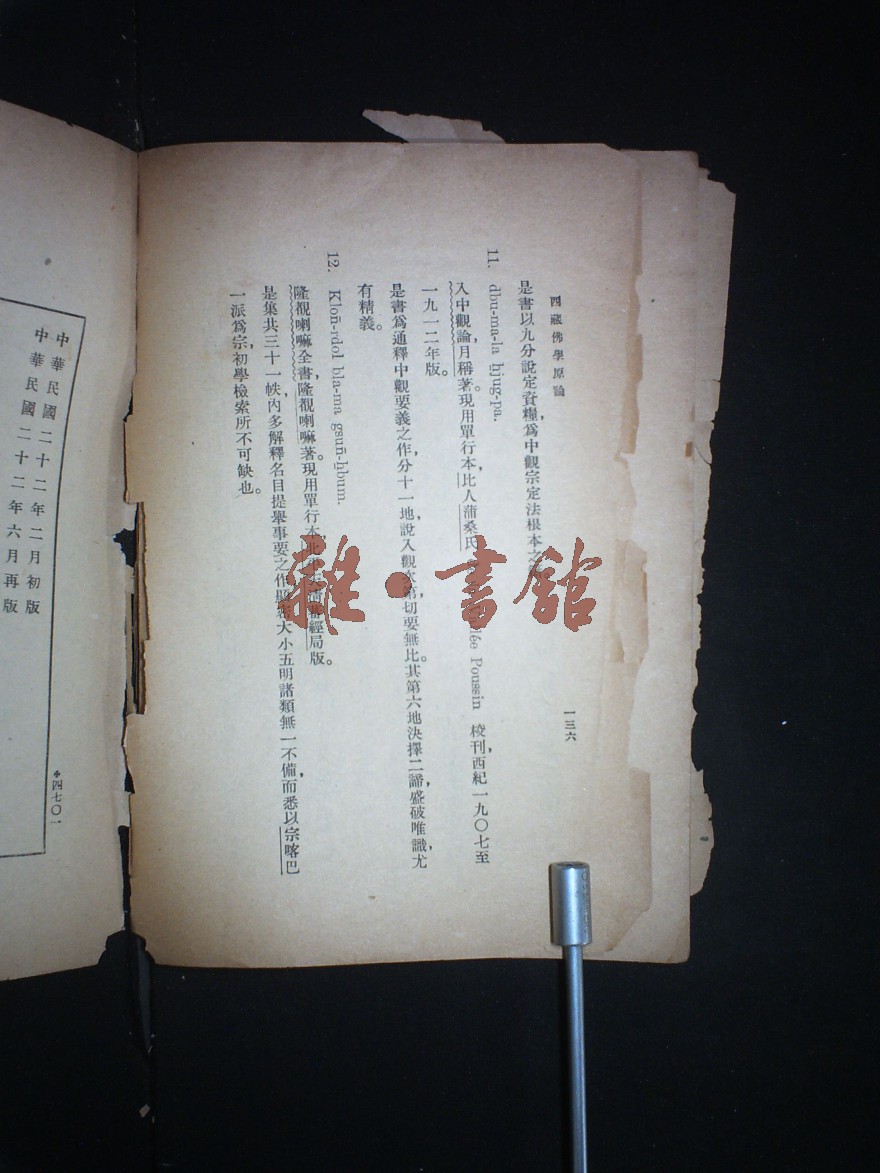 西藏佛學原論
一三六
是書以九分說定資糧，爲中觀宗定法根本之
11. dbu-ma-la ḥjug-pa.
入中觀論，月稱著。現用單行本，比人蒲桑氏 Poussin 校刊，西紀一九〇七至
一九一二年版。
是書爲通釋中觀要義之作，分十一地說入觀次第，切要無比。其第六地決擇二諦，盛破唯識，尤
有精義。
12. Kloṅ-rdol bla-ma gsuṅ-ḥbum.
隆覩喇嘛全書，隆覩喇嘛著。現用單行本，經局版。
是集共三十一帙，內多解釋名目提舉事要之作，大小五明諸類無一不備，而悉以宗喀巴
一派爲宗，初學檢索所不可缺也。
中華民國二十二年二月初版
中華民國二十二年六月再版
四七〇一
雜·書館